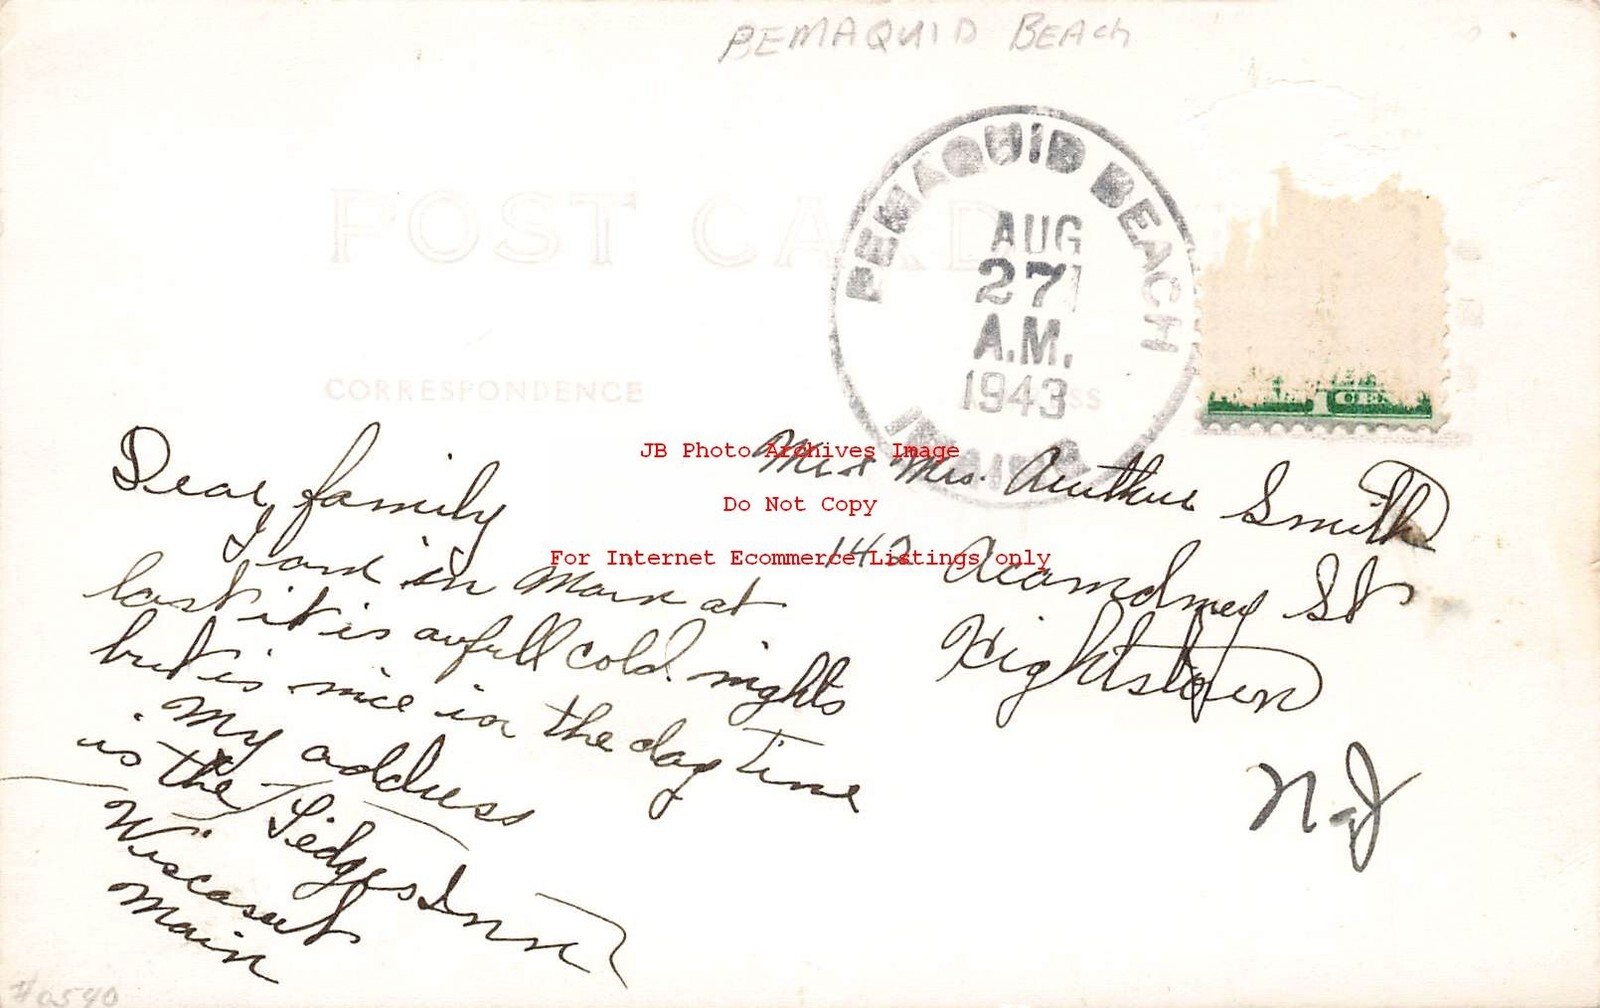 PEMAQUID BEACH
POST CARD
PEMAQUID BEACH
AUG
27
A.M.
1943
MAINE
1 CE
CORRESPONDENCE
SS
JB Photo Archives Image
Do Not Copy
For Internet Ecommerce Listings only
Dear family
I am in Main at
last it is awfull cold nights
but is nice in the day time
My address
is the Ledges Inn
Wiscasset
Main
Mr & Mrs. Arthur Smith
142 St
Hightstown
N.J
#0540